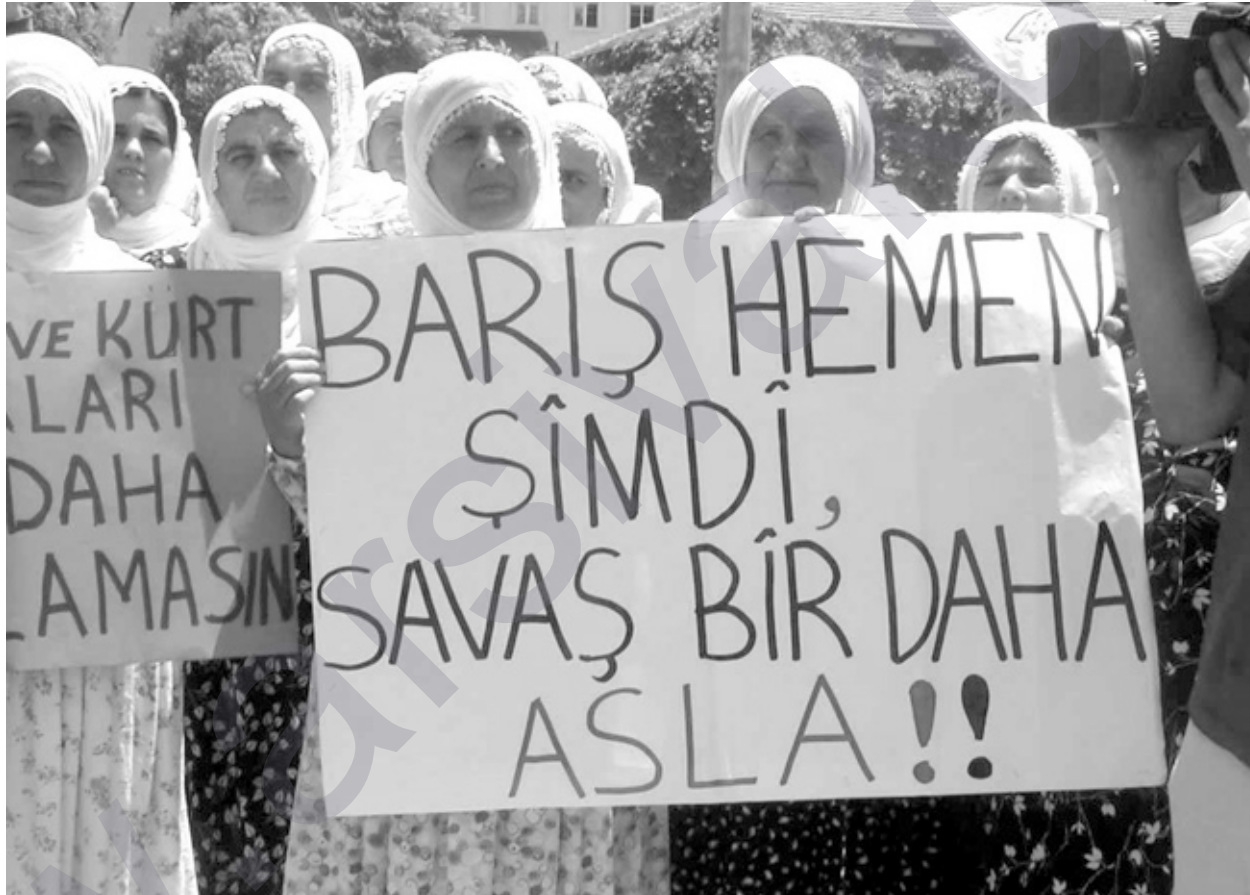 VE KÜRT
LARI
DAHA
LAMASIN
BARIŞ HEMEN
ŞÎMDÎ,
SAVAŞ BÎR DAHA
ASLA!!